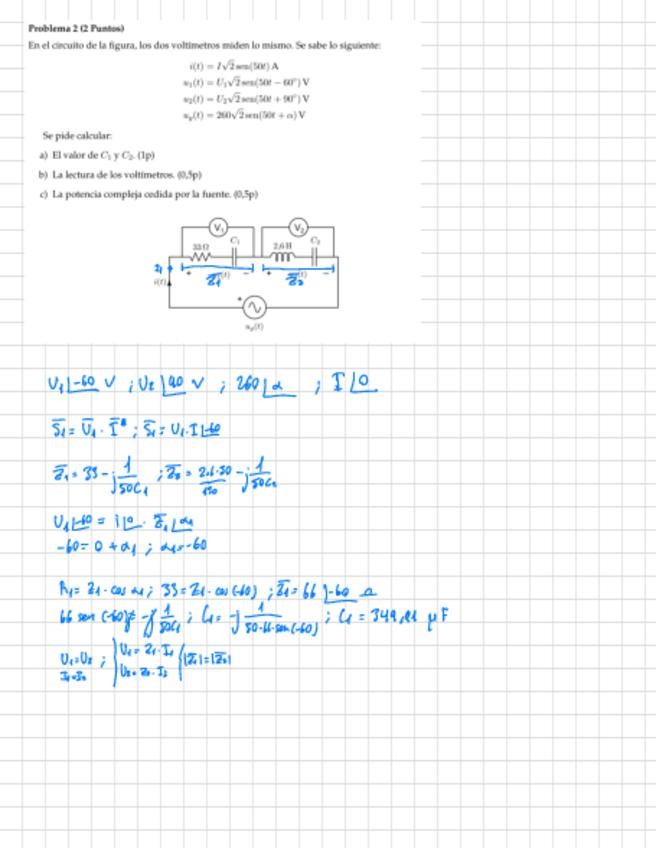 Problema 2 (2 Puntos)
En el circuito de la figura, los dos voltímetros miden lo mismo. Se sabe lo siguiente:
i(t) = I√2 sen(50t) A
u₁(t) = U₁√2 sen(50t − 60°) V
u₂(t) = U₂√2 sen(50t + 90°) V
u_g(t) = 260√2 sen(50t + α) V
Se pide calcular:
a) El valor de C₁ y C₂. (1p)
b) La lectura de los voltímetros. (0,5p)
c) La potencia compleja cedida por la fuente. (0,5p)
V₁ V₂
33 Ω C₁ 2,6 H C₂
+ Z̄₁ − + Z̄₂ −
i(t)
+
u_g(t)
U₁∠-60 V ; U₂∠90 V ; 260∠α ; I∠0
S̄₁ = Ū₁ · Ī* ; S̄₁ = U₁·I∠-60
Z̄₁ = 33 - j 1/50C₁ ; Z̄₂ = 2,6·50 - j 1/50C₂
130
U₁∠-60 = I∠0 · Z̄₁∠α₁
-60 = 0 + α₁ ; α₁ = -60
R₁ = Z₁ · cos α₁ ; 33 = Z₁ · cos(-60) ; Z̄₁ = 66∠-60 Ω
66 sen(-60) = -j 1/50C₁ ; C₁ = -j 1/50·66·sen(-60) ; C₁ = 349,91 μF
U₁=U₂ ; U₁ = Z₁·I₁ |Z̄₁|=|Z̄₂|
I₁=I₂ U₂ = Z₂·I₂